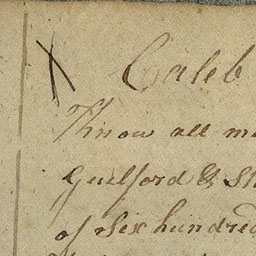 Caleb
Know all m
Guilford & St
of Six hundred